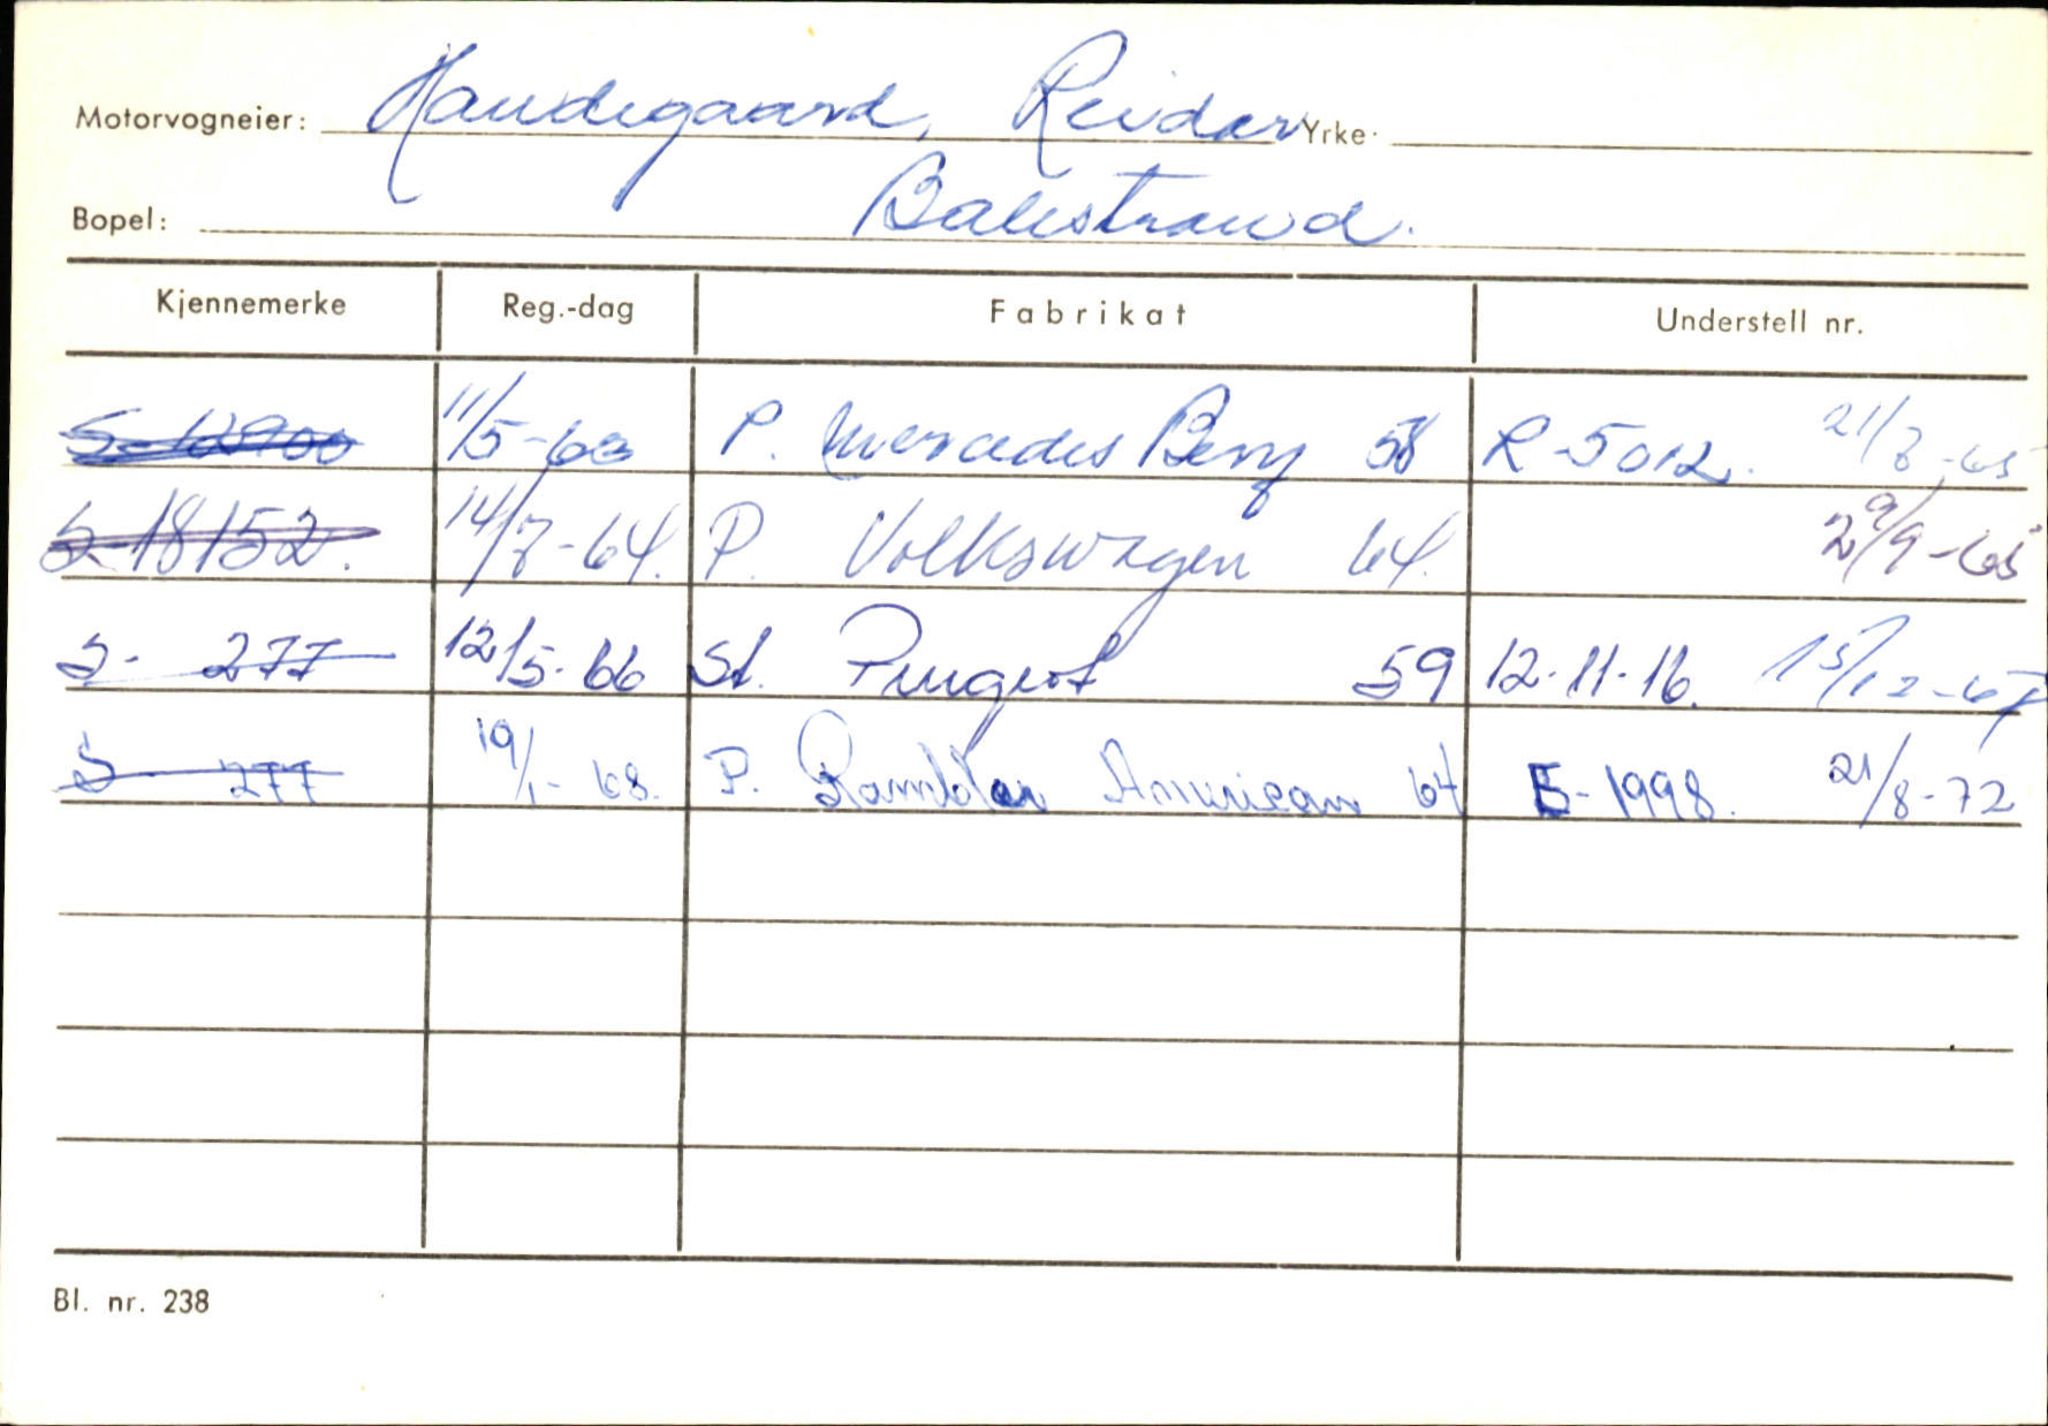 Motorvogneier: Haudegaard, Reidar Yrke:
Bopel: Balestrand.
Kjennemerke Reg.-dag Fabrikat Understell nr.
11/5-63 P. Mercedes Benz 58 R-5012. 21/8-65
S-18152. 14/7-64. P. Volkswagen 64. 29/9-65
S- 277 12/5-66 St. Peugeot 59 12-11-16. 15/12-67
S 277 19/1-68. P. Rambler American 64 E-1998. 21/8-72
Bl. nr. 238